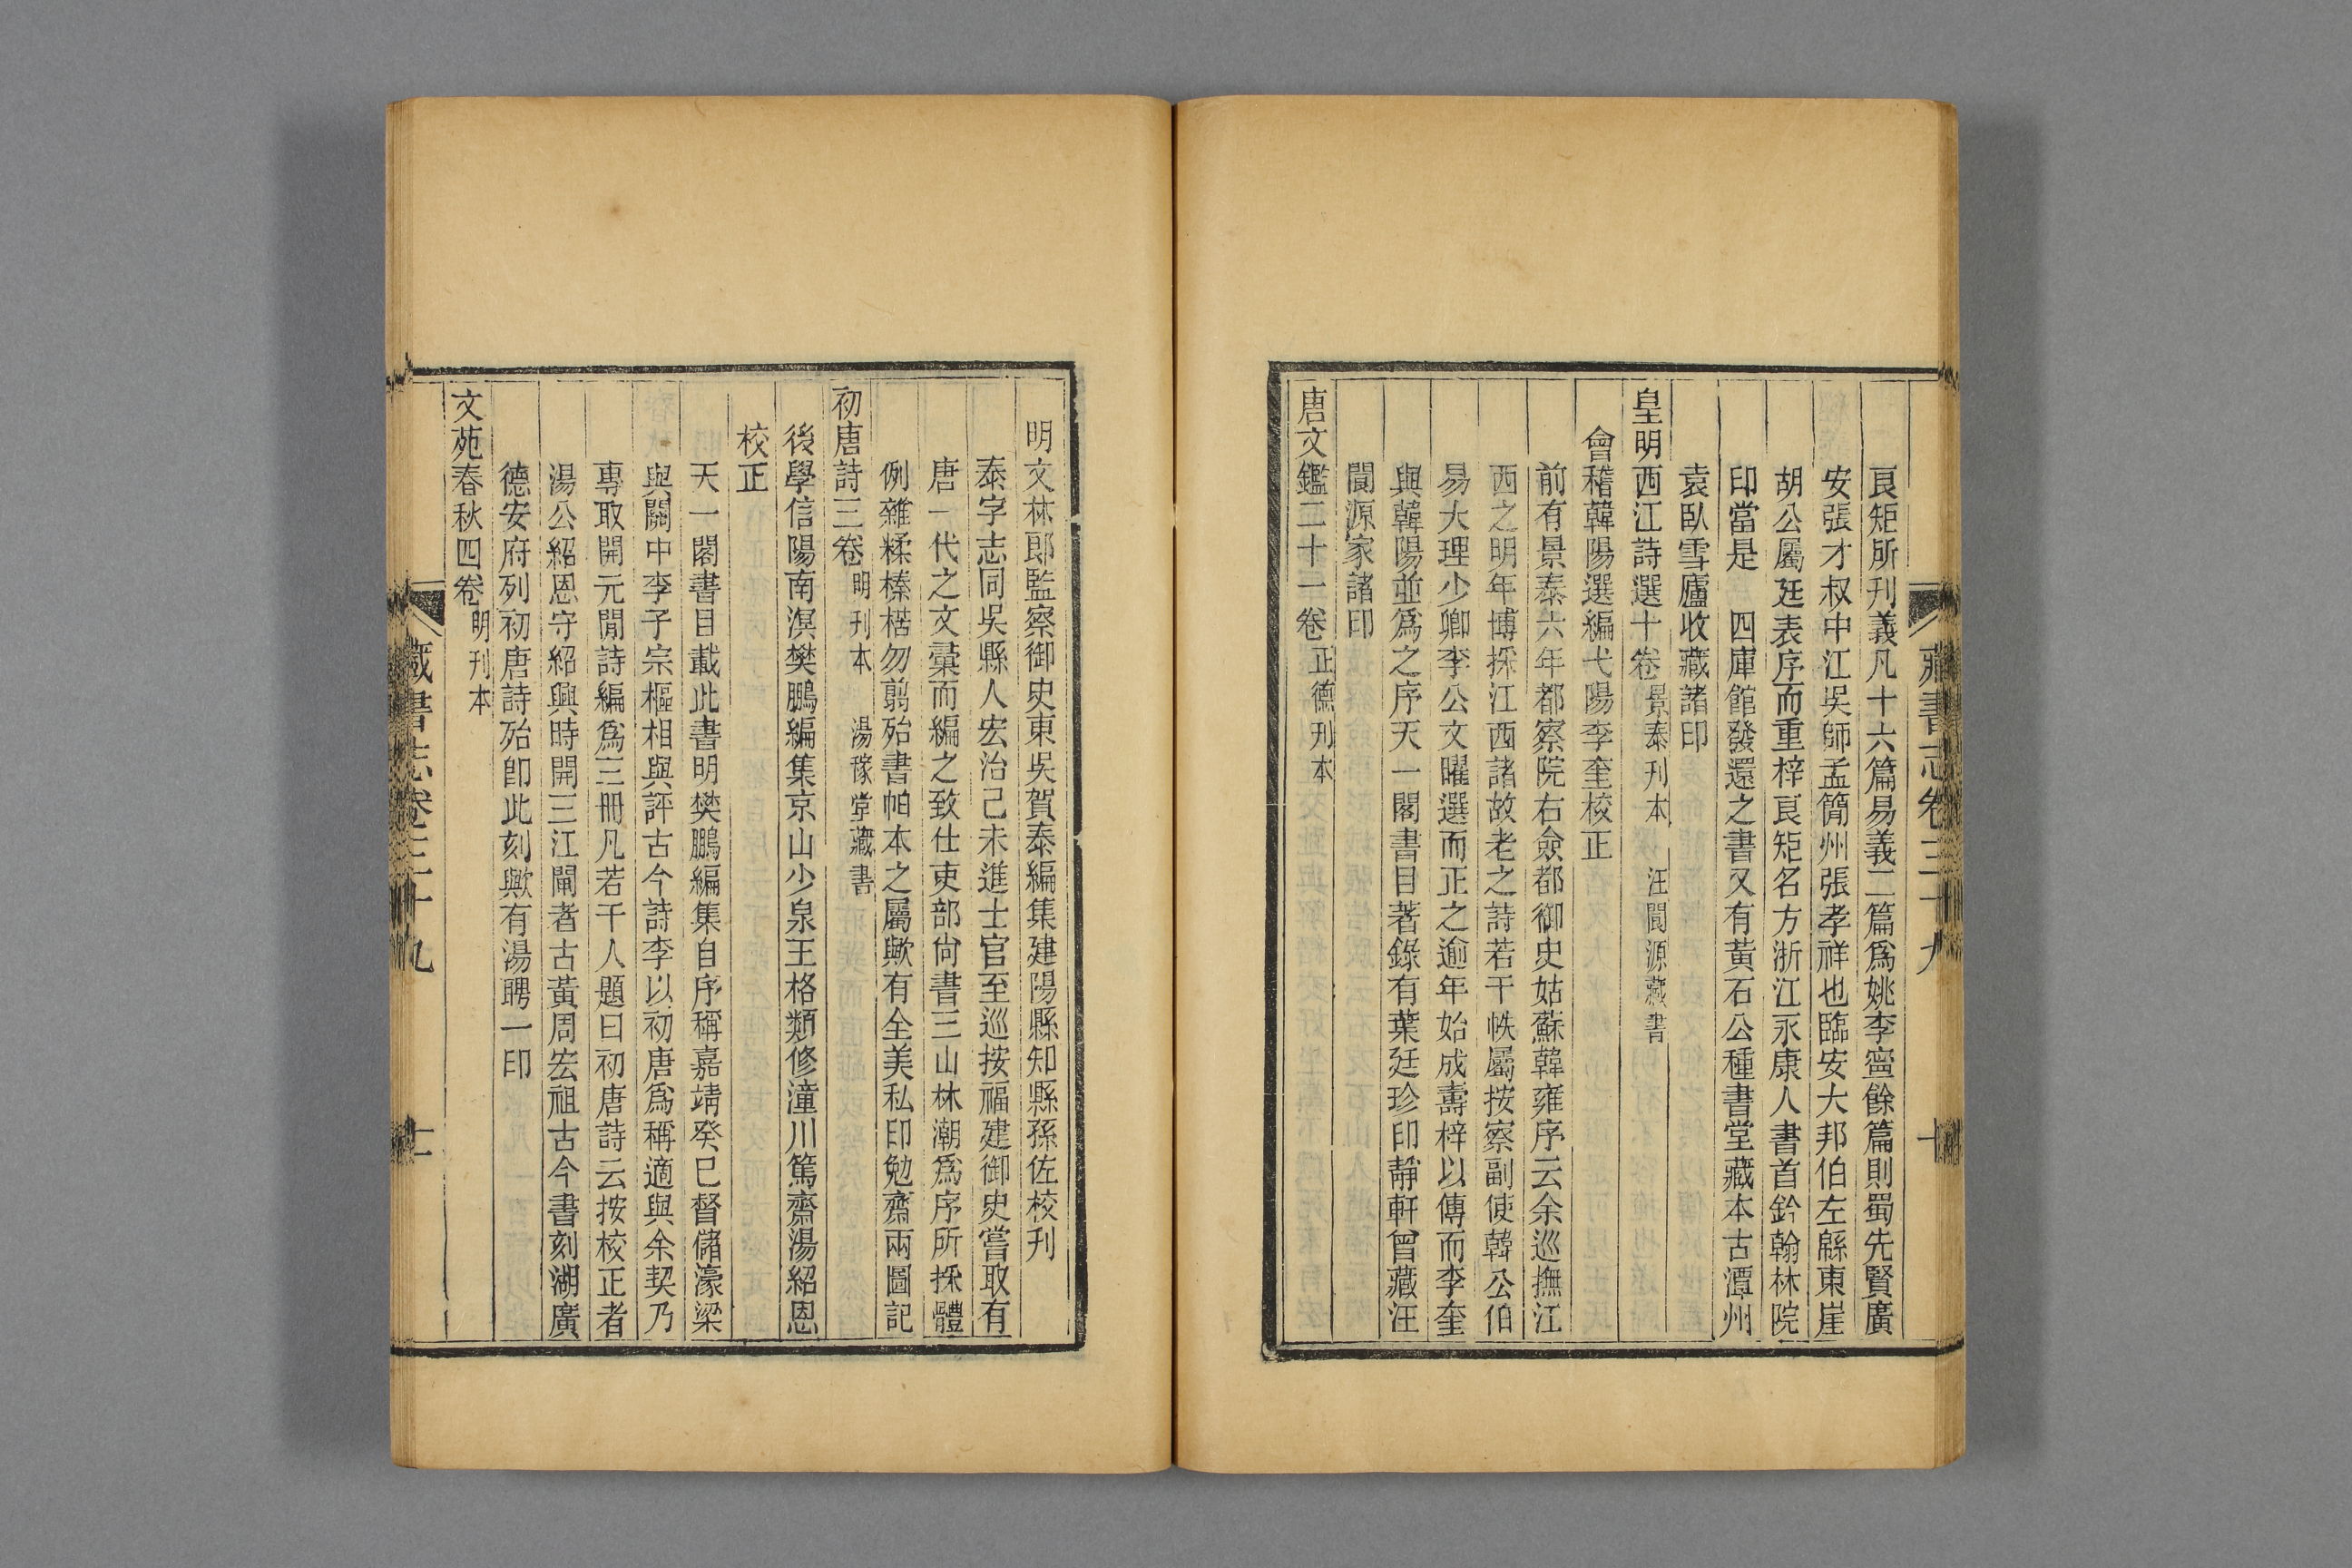 藏書志卷三十九
十
良矩所刋義凡十六篇易義二篇爲姚李寧餘篇則蜀先賢廣
安張才叔中江吳師孟簡州張孝祥也臨安大邦伯左緜東崖
胡公屬廷表序而重梓良矩名方浙江永康人書首鈐翰林院
印當是 四庫館發還之書又有黃石公種書堂藏本古潭州
袁臥雪廬收藏諸印
皇明西江詩選十卷 景泰刋本 汪閬源藏書
會稽韓陽選編弋陽李奎校正
前有景泰六年都察院右僉都御史姑蘇韓雍序云余巡撫江
西之明年博採江西諸故老之詩若干帙屬按察副使韓公伯
易大理少卿李公文曜選而正之逾年始成壽梓以傳而李奎
與韓陽並爲之序天一閣書目著錄有葉廷珍印靜軒曾藏汪
閬源家諸印
唐文鑑二十一卷 正德刋本
明文林郎監察御史東吳賀泰編集建陽縣知縣孫佐校刋
泰字志同吳縣人宏治己未進士官至巡按福建御史嘗取有
唐一代之文彚而編之致仕吏部尙書三山林瀚爲序所採體
例雜糅榛楛勿翦殆書帕本之屬歟有全美私印勉齋兩圖記
初唐詩三卷 明刋本 湯稼堂藏書
後學信陽南溟樊鵬編集京山少泉王格類修潼川篤齋湯紹恩
校正
天一閣書目載此書明樊鵬編集自序稱嘉靖癸巳督儲濠梁
與關中李子宗樞相與評古今詩李以初唐爲稱適與余契乃
專取開元閒詩編爲三冊凡若干人題曰初唐詩云按校正者
湯公紹恩守紹興時開三江閘者古黃周宏祖古今書刻湖廣
德安府列初唐詩殆卽此刻歟有湯聘一印
文苑春秋四卷 明刋本
藏書志卷三十九
十一